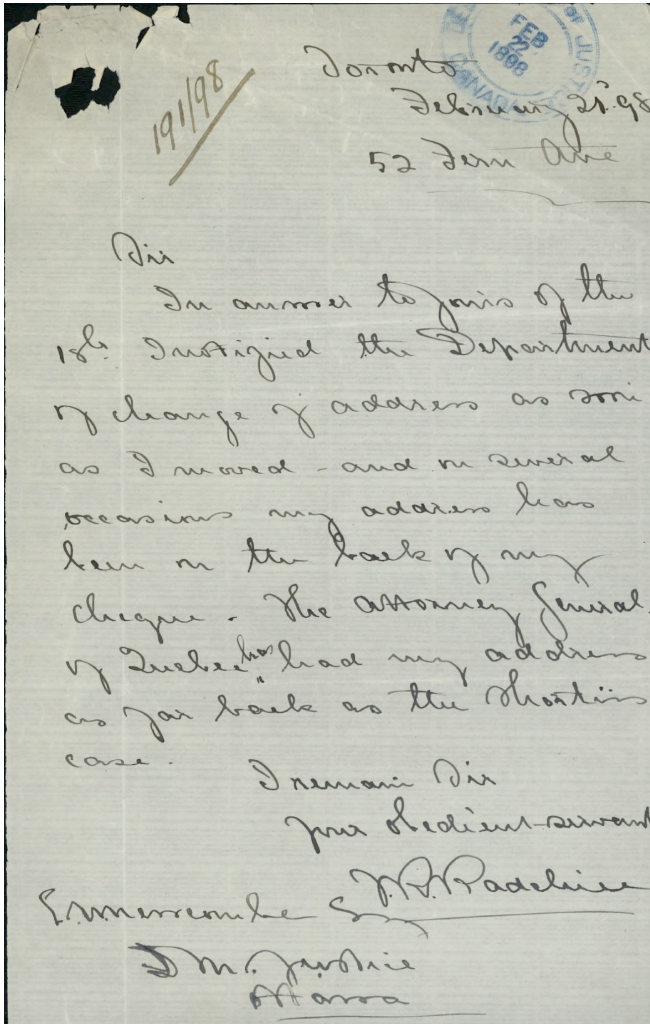 DE OF JUSTICE
FEB
22
1898
CANADA
191/98
Toronto
February 21st 98
52 Fern Ave
Sir
In answer to yours of the
18th I notified the Department
of change of address as soon
as I moved - and on several
occasions my address has
been on the back of my
cheque. The Attorney General
of Quebec has had my address
as far back as the Shortis
case.
I remain Sir
your obedient servant
J. R. Radclive
E. Newcombe Esq
D M. Justice
Ottawa